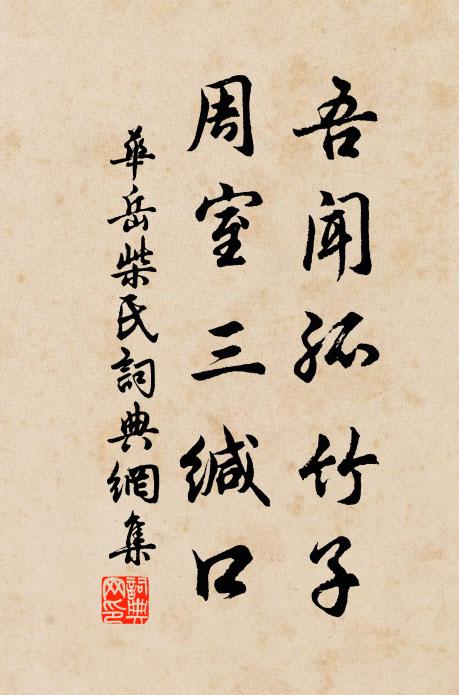 吾闻孤竹子
周室三缄口
華岳柴氏詞典網集
詞典網印